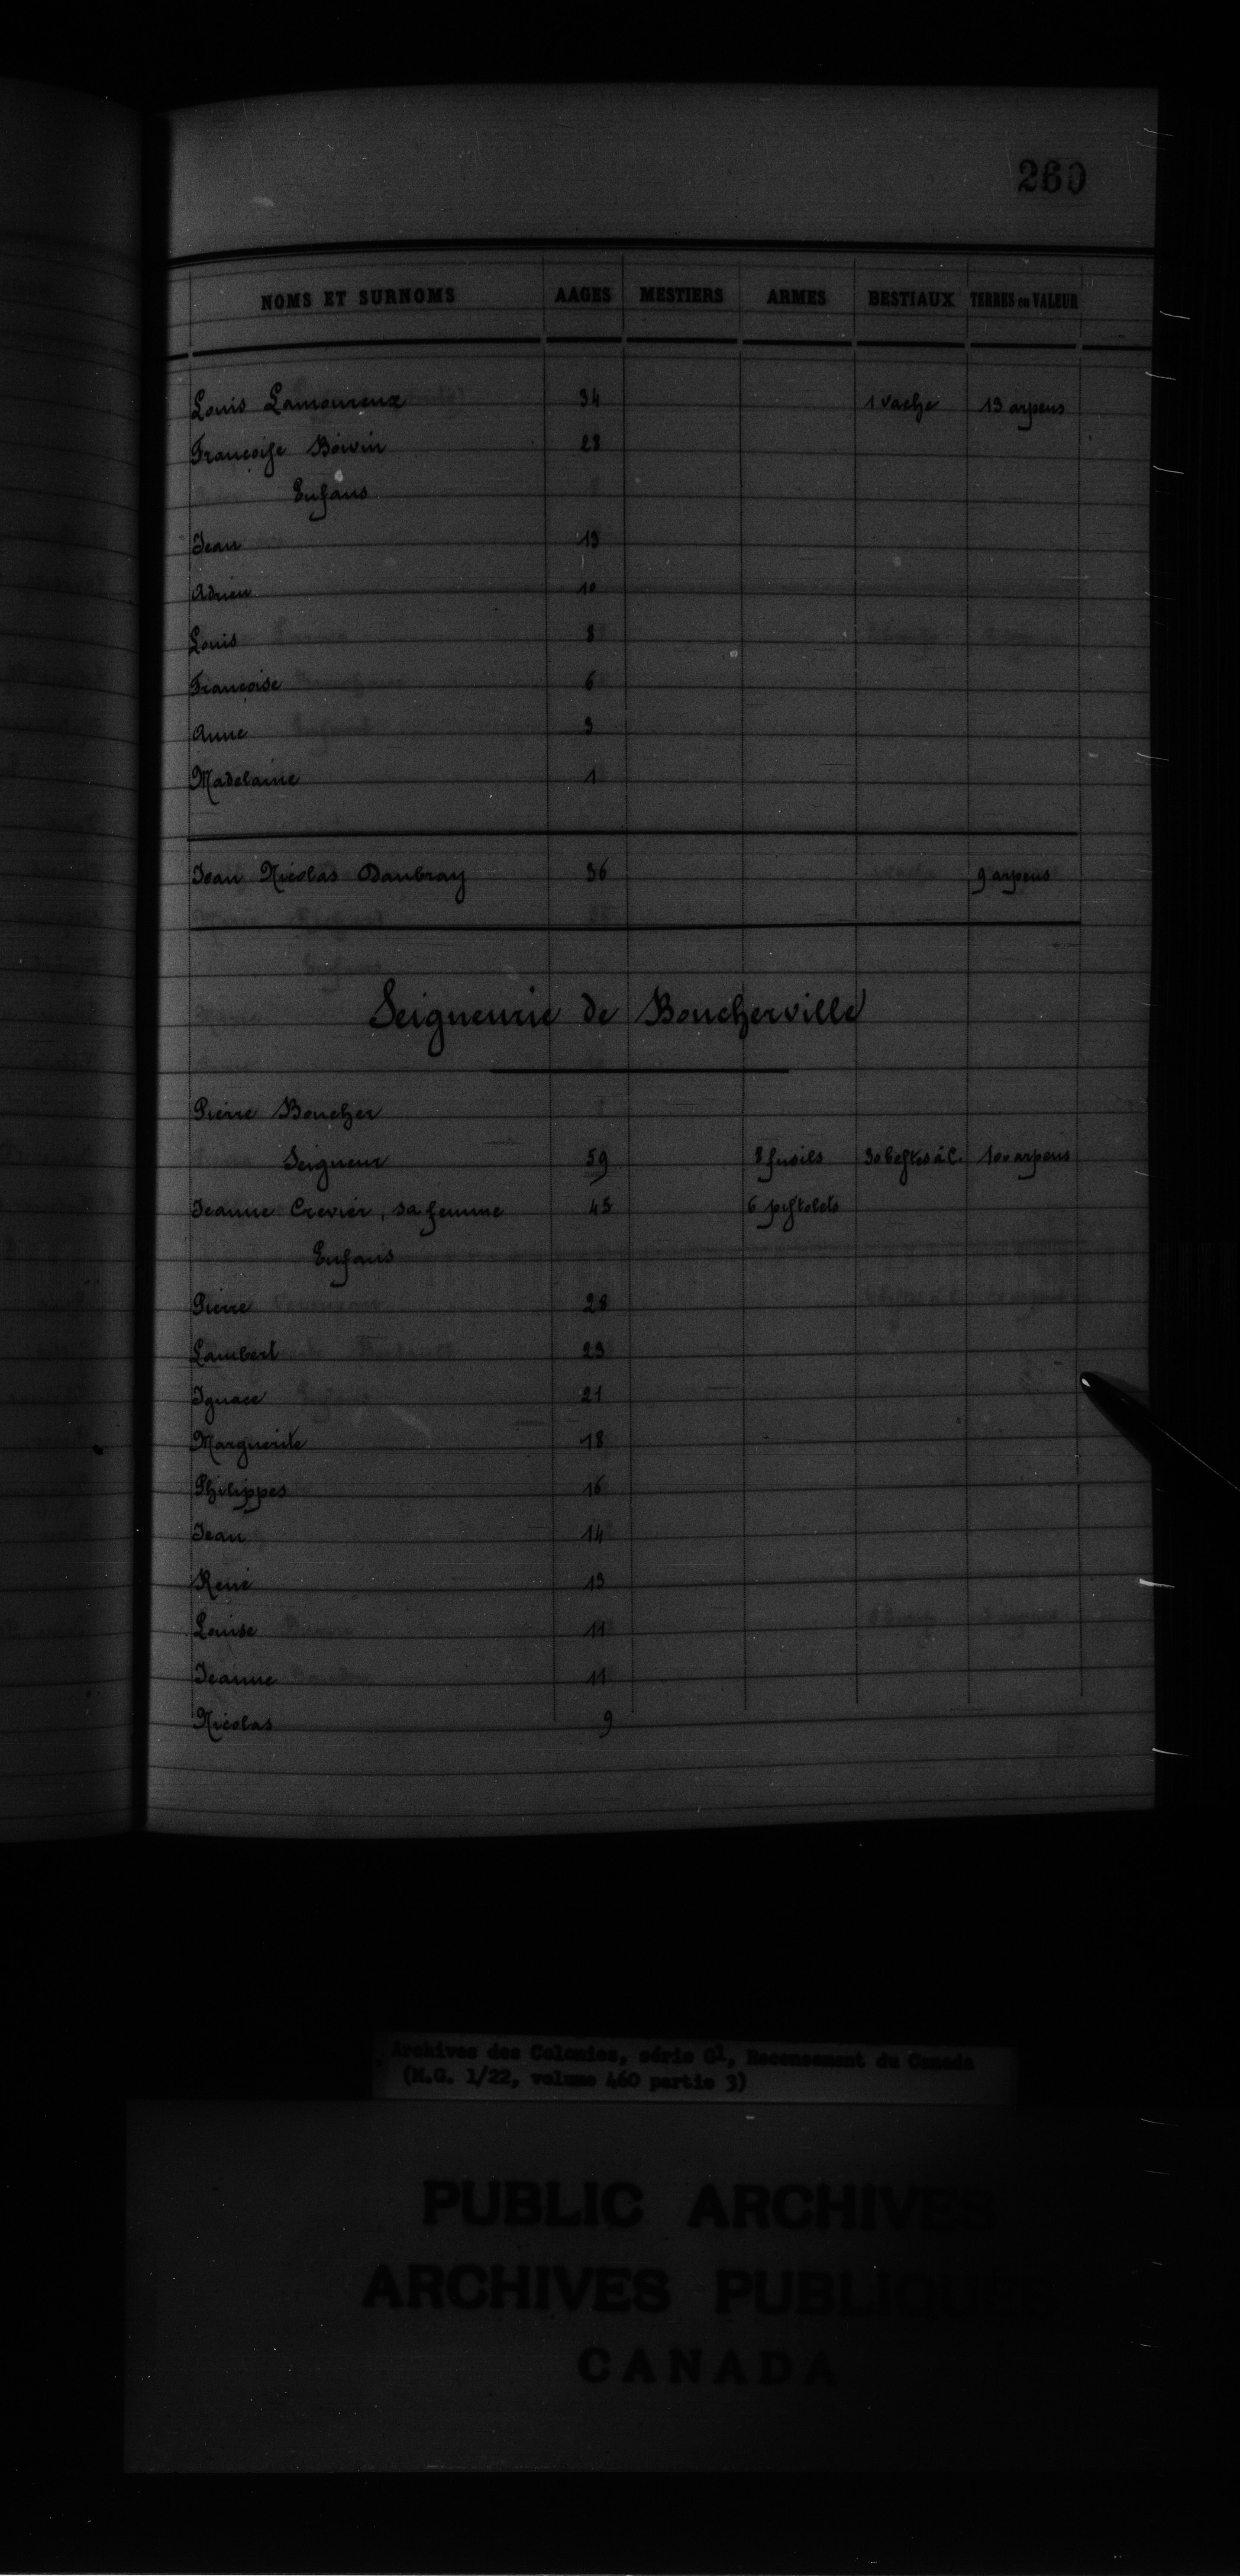 260
NOMS ET SURNOMS AAGES MESTIERS ARMES BESTIAUX TERRES en VALEUR
Louis Lamoureux 34 1 vache 13 arpens
Françoise Boivin 28
Enfans
Jean 13
Adrien 10
Louis 8
Françoise 6
Anne 3
Madelaine 1
Jean Nicolas Daubray 36 9 arpens
Seigneurie de Boucherville
Pierre Boucher
Seigneur 59 8 fusils 30 bestes à C. 100 arpens
Jeanne Crevier, sa femme 45 6 pistolets
Enfans
Pierre 28
Lambert 23
Ignace 21
Marguerite 18
Philippes 16
Jean 14
René 13
Louise 11
Jeanne 11
Nicolas 9
Archives des Colonies, série G1, Recensement du Canada
(M.G. 1/22, volume 460 partie 3)
PUBLIC ARCHIVES
ARCHIVES PUBLIQUES
CANADA